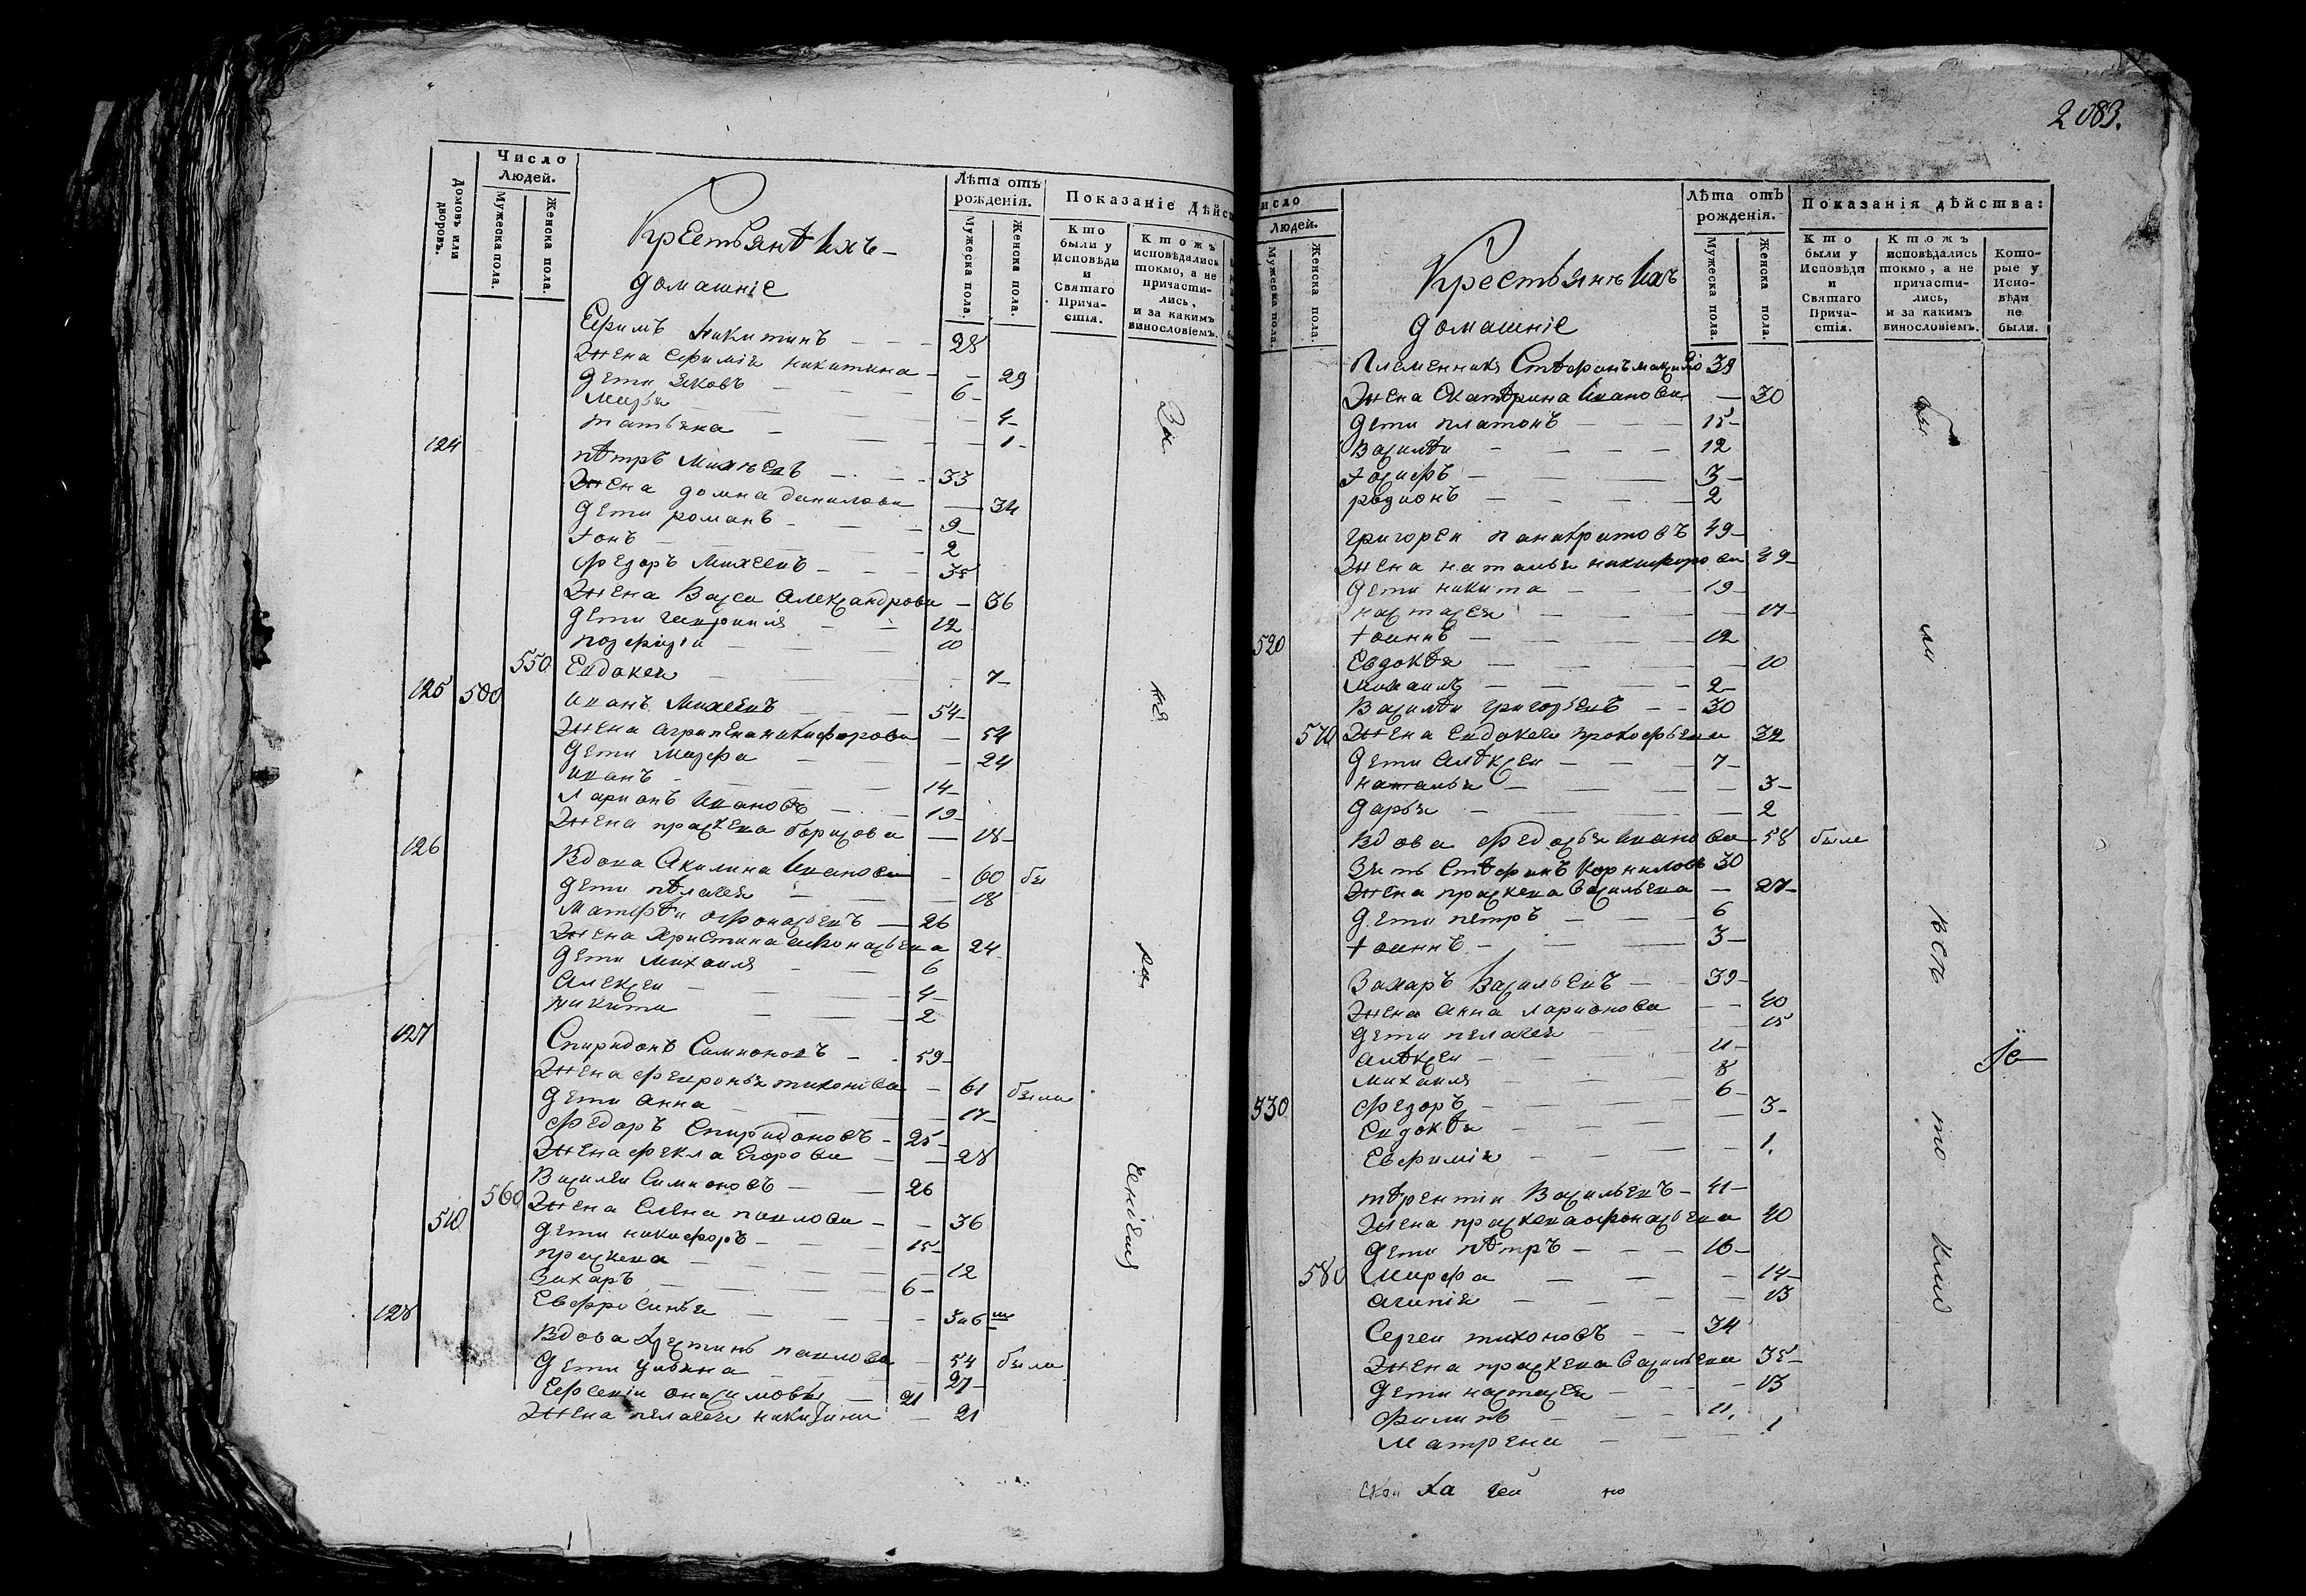 Число
Людей.
Домовъ или дворовъ.
Мужеска пола.
Женска пола.
Крестьянѣ ихъ
домашніе
Лѣта отъ
рожденія.
Мужеска пола.
Женска пола.
Показаніе дѣйс
Кто
были у
Исповѣди
и
Святаго
Прича-
стія.
Ктожъ
исповѣдались
токмо, а не
причасти-
лись,
и за какимъ
винословіемъ.
Ефимъ Никитинъ 28
Жена Ефиміа никитина 29
дети Яковъ 6
4
татьяна 1
124
пѣтръ Михѣевъ 33
Жена домна данилова 34
дети романъ 9
Іонъ 2
Федоръ Михеевъ 35
Жена Васса Александрова 36
дети 12
10
550 Евдокея 7
125 500
иванъ Михеевъ 54
Жена агрипена никифорова 54
дети Марфа 24
иванъ 14
Ларионъ Ивановъ 19
Жена праскева борисова 18
126
Вдова Акилина Иванова 60 бы
дети пѣлагея 18
Матфѣи афонасьевъ 26
Жена Христина афонасьева 24
дети Михаиля 6
Алексеи 4
никита 2
127
Спиридонъ Симионовъ 59
Жена феврониа тихонова 61 была
дети Анна 17
Федоръ Спиридоновъ 25
Жена фекла Егорова 28
Василеи Симионовъ 26
560 Жена Елена павлова 36
510
дети никифоръ 15
праскева 12
Захаръ 6
Ефросинья
128
Вдова павлова 54 была
дети улияна 27
21
Жена пелагея никитина 21
2083.
исло
Людей.
Мужеска пола.
Женска пола.
Крестьянѣ Ихъ
домашніе
Лѣта отъ
рожденія.
Мужеска пола.
Женска пола.
Показанія дѣйства:
Кто
были у
Исповѣди
и
Святаго
Прича-
стія.
Ктожъ
исповѣдались
токмо, а не
причасти-
лись,
и за какимъ
винословіемъ.
Кото-
рые у
Испо-
вѣди
не
были.
Племенникъ Стѣфанъ 39
Жена Екатѣрина Иванова 30
дети платонъ 15
Василѣи 12
Іосифъ 3
родионъ 2
григореи панкратовъ 49
Жена наталья никифорова 49
дети никита 19
настасея 17
520
Іоаннъ 12
Евдокѣя 10
Михаилъ 2
Василѣи григорьевъ 30
570 Жена Евдокея прокофьева 32
дети Алѣксеи 7
наталья 3
дарья 2
Вдова федосья иванова 58 была
Зять Стѣфанъ корниловъ 30
Жена праскева Васильева 27
дети петръ 6
Іоаннъ 3
Захаръ Васильевъ 39
Жена Анна ларионова 40
дети пелагея 15
Алѣксеи 11
Михаиля 8
530
Федоръ 6
Евдокѣя 3
Евфимія 1
тѣрентіи Васильевъ 41
Жена праскева афонасьева 40
дети пѣтръ 16
580 Марфа 14
агапія 13
Сергеи тихоновъ 34
Жена праскева Васильева 35
дети настасея 13
филипъ 11
Матрена 1